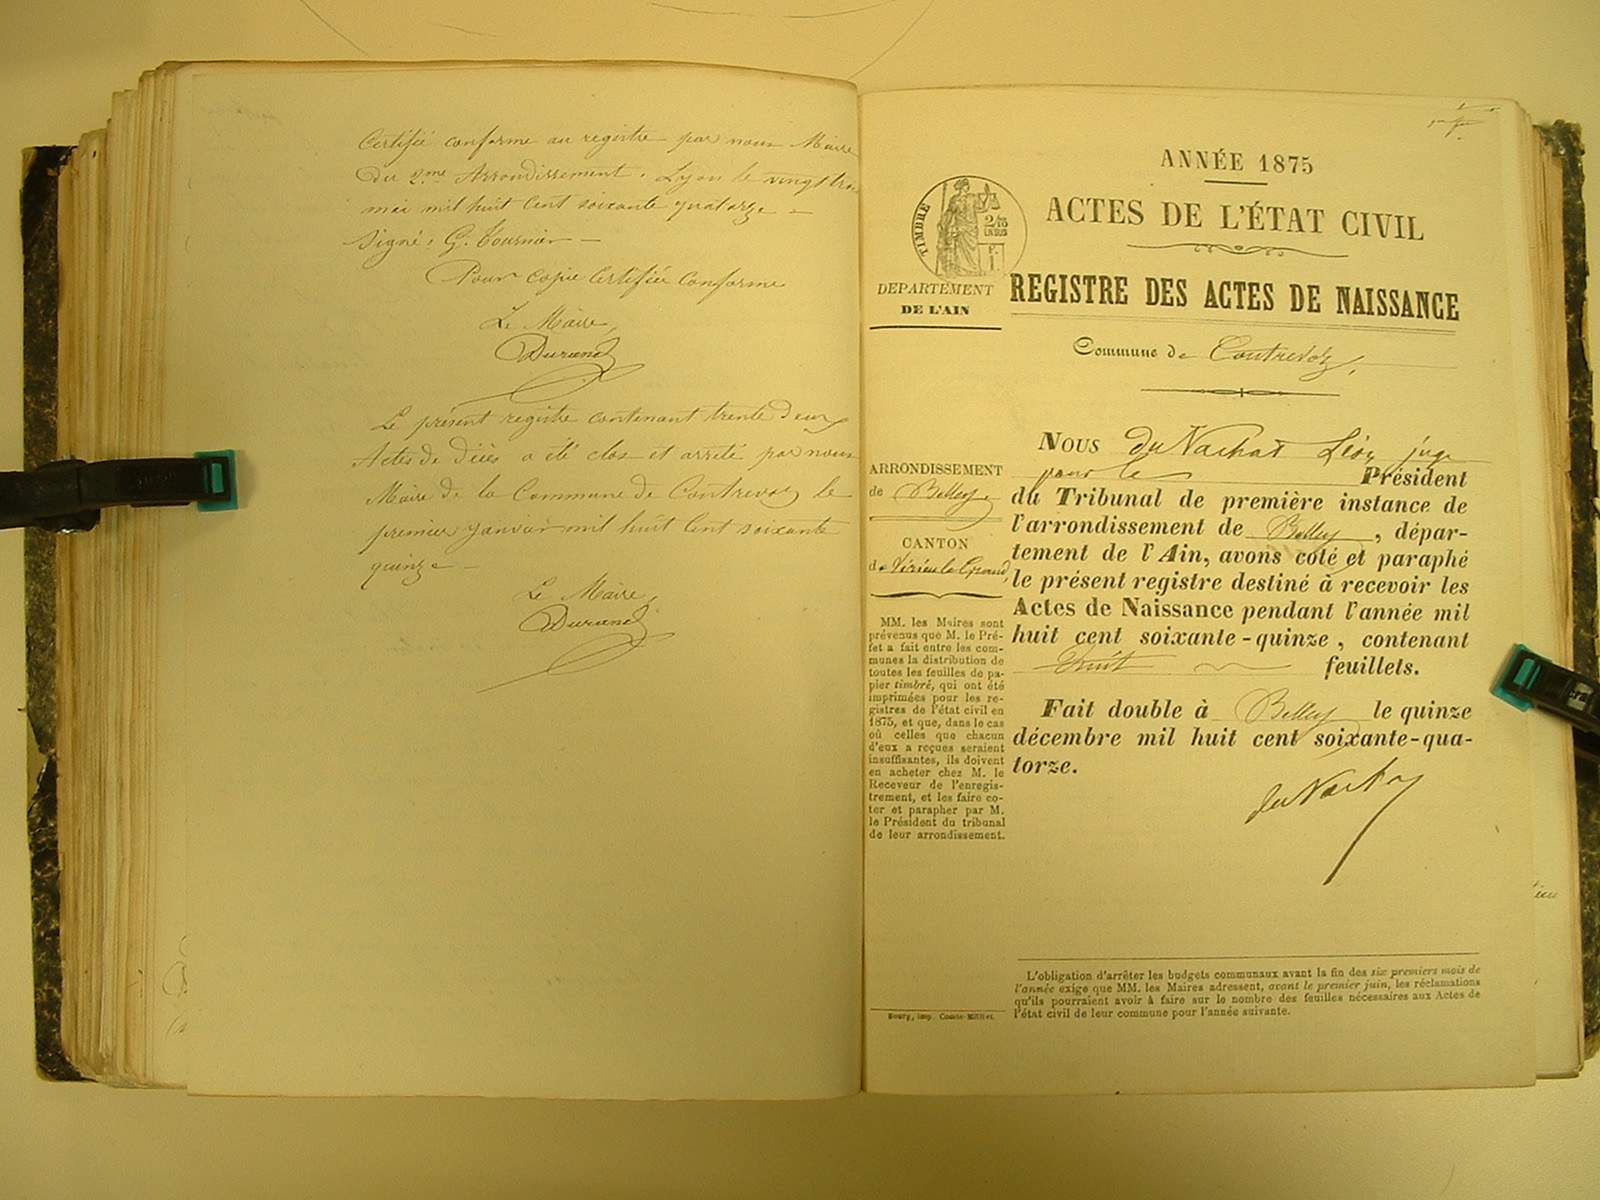 Certifié conforme au registre par nous Maire
du 2.me Arrondissement. Lyon le vingt trois
mai mil huit Cent soixante quatorze -
Signé: G. Tournier -
Pour copie Certifiée Conforme
Le Maire,
Durand
Le présent registre contenant trente deux
Actes de Décès a été clos et arrêté par nous
Maire de la Commune de Contrevoz le
premier janvier mil huit Cent soixante
quinze -
Le Maire,
Durand
ANNÉE 1875
ACTES DE L'ÉTAT CIVIL
REGISTRE DES ACTES DE NAISSANCE
Commune de Contrevoz,
TIMBRE
DÉPARTEMENT
DE L'AIN
ARRONDISSEMENT
de Belley
CANTON
de Virieu le Grand
MM. les Maires sont
prévenus que M. le Pré-
fet a fait entre les com-
munes la distribution de
toutes les feuilles de pa-
pier timbré, qui ont été
imprimées pour les re-
gistres de l'état civil en
1875, et que, dans le cas
où celles que chacun
d'eux a reçues seraient
insuffisantes, ils doivent
en acheter chez M. le
Receveur de l'enregis-
trement, et les faire co-
ter et parapher par M.
le Président du tribunal
de leur arrondissement.
Bourg, imp. Comte-Milliet.
NOUS du Nachat Léon juge
pour le Président
du Tribunal de première instance de
l'arrondissement de Belley, dépar-
tement de l'Ain, avons coté et paraphé
le présent registre destiné à recevoir les
Actes de Naissance pendant l'année mil
huit cent soixante-quinze, contenant
huit feuillets.
Fait double à Belley le quinze
décembre mil huit cent soixante-qua-
torze.
du Nachat
L'obligation d'arrêter les budgets communaux avant la fin des six premiers mois de
l'année exige que MM. les Maires adressent, avant le premier juin, les réclamations
qu'ils pourraient avoir à faire sur le nombre des feuilles nécessaires aux Actes de
l'état civil de leur commune pour l'année suivante.